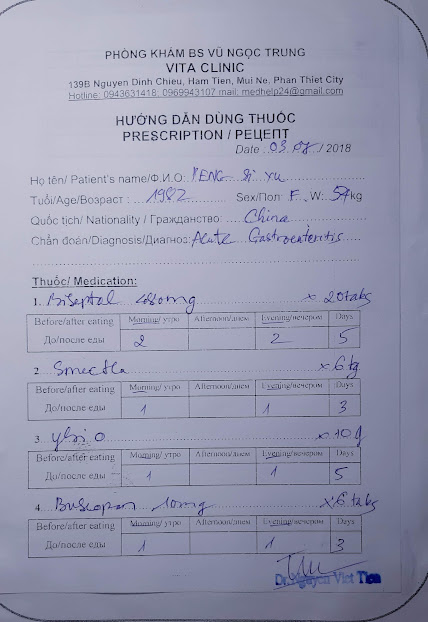 PHÒNG KHÁM BS VŨ NGỌC TRUNG
VITA CLINIC
139B Nguyen Dinh Chieu, Ham Tien, Mui Ne, Phan Thiet City
Hotline: 0943631418; 0969943107 mail: medhelp24@gmail.com
HƯỚNG DẪN DÙNG THUỐC
PRESCRIPTION / РЕЦЕПТ
Date : 03 / 2018
Họ tên/ Patient's name/Ф.И.О:
Tuổi/Age/Возраст : 1982 Sex/Пол: F W: 54kg
Quốc tịch/ Nationality / Гражданство: China
Chẩn đoán/Diagnosis/Диагноз: Acute Gastroenteritis
Thuốc/ Medication:
1. Biseptol 480mg x 20tabs
Before/after eating Morning/ утро Afternoon/днем Evening/вечером Days
До/после еды 2 2 5
2. Smecta x 6
Before/after eating Morning/ утро Afternoon/днем Evening/вечером Days
До/после еды 1 1 3
3. x 10
Before/after eating Morning/ утро Afternoon/днем Evening/вечером Days
До/после еды 1 1 5
4. Buscopan 10mg x 6 tabs
Before/after eating Morning/ утро Afternoon/днем Evening/вечером Days
До/после еды 1 1 3
Dr. Nguyen Viet Tien